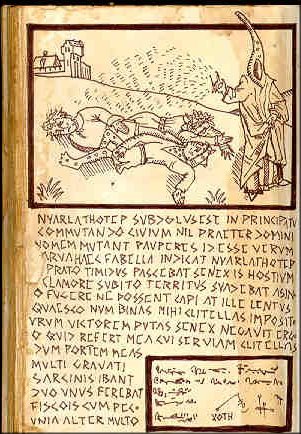 NYARLATHOTEP SUBDOLUS ESE IN PRINCIPATU
COMMUTANDO CIVIUM NIL PRAETER DOMINI
NOMEM MUTANT PAUPERES ID ESSE VERUM
ARVA HAEC FABELLA INDICAT NYARLATHOTEP
PRATO TIMIDUS PASCEBAT SENEX IS HOSTIUM
CLAMORE SUBITO TERRITUS SUADEBAT ASIN
O FUGERE NE POSSENT CAPI AT ILLE LENTUS
QUAESCO NUM BINAS MIHI CLITELLAS IMPOSIT
URUM VICTOREM PUTAS SENEX NEGAVIT ERG
O QUID REFERT MEA CUI SERVIAM CLITELLAS
DUM PORTEM MEAS
MULTI GRAVATI
SARCINIS IBANT
DUO UNUS FEREBAT
FISCOIS CUM PEC
UNIA ALTER MULTO
XOTH